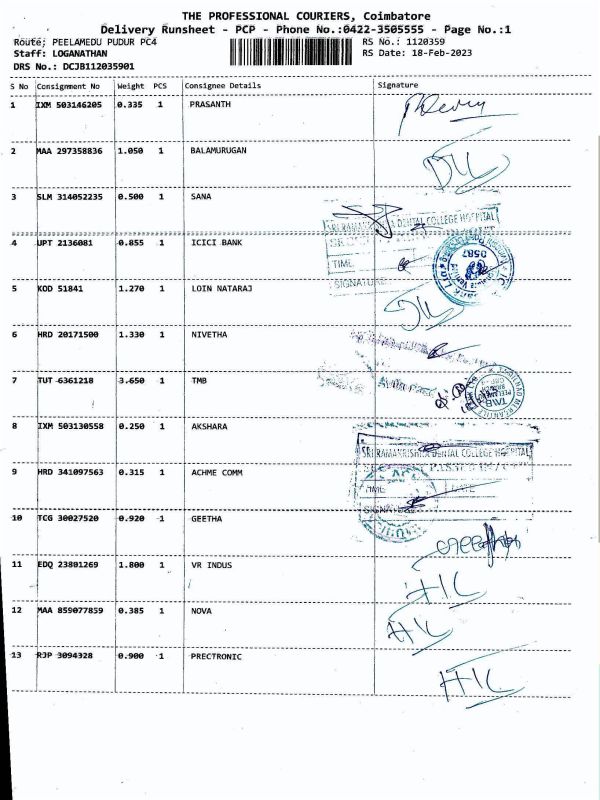 THE PROFESSIONAL COURIERS, Coimbatore
Delivery Runsheet - PCP - Phone No.:0422-3505555 - Page No.:1
Route; PEELAMEDU PUDUR PC4 RS No.: 1120359
Staff: LOGANATHAN RS Date: 18-Feb-2023
DRS No.: DCJB112035901
S No Consignment No Weight PCS Consignee Details Signature
1 IXM 503146205 0.335 1 PRASANTH
2 MAA 297358836 1.050 1 BALAMURUGAN
3 SLM 314052235 0.500 1 SANA
SRI RAMAKRISHNA DENTAL COLLEGE HOSPITAL
4 UPT 2136081 0.855 1 ICICI BANK
TIME
0587
SIGNATURE
5 KOD 51841 1.270 1 LOIN NATARAJ
6 HRD 20171500 1.330 1 NIVETHA
7 TUT 6361218 3.650 1 TMB
TMB
8 IXM 503130558 0.250 1 AKSHARA
SRI RAMAKRISHNA DENTAL COLLEGE HOSPITAL
9 HRD 341097563 0.315 1 ACHME COMM
TIME DATE
SIGNATURE
10 TCG 30027520 0.920 1 GEETHA
11 EDQ 23801269 1.800 1 VR INDUS
12 MAA 859077859 0.385 1 NOVA
13 RJP 3094328 0.900 1 PRECTRONIC